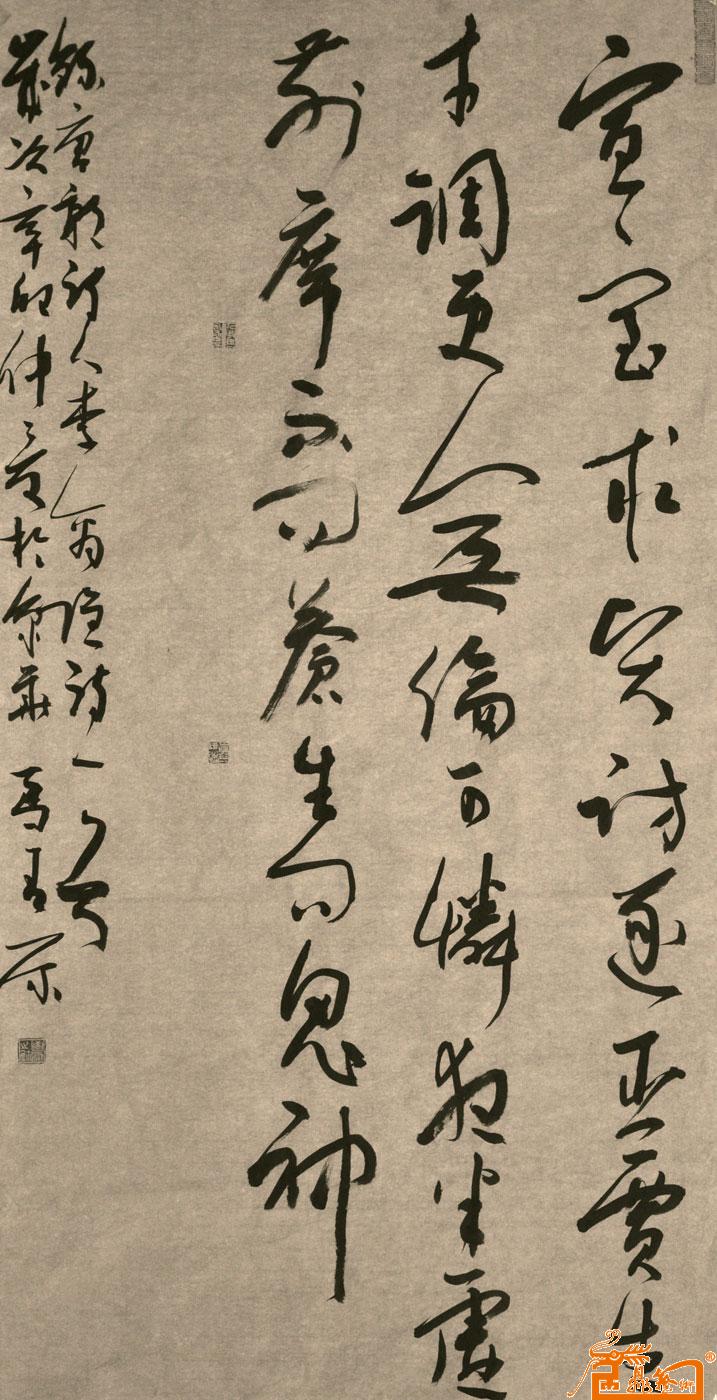 宣室求賢訪逐臣賈生
才調更無倫可憐夜半虛
前席不問蒼生問鬼神
錄唐朝詩人李商隱詩一首
歲次辛卯仲夏於京華 馬